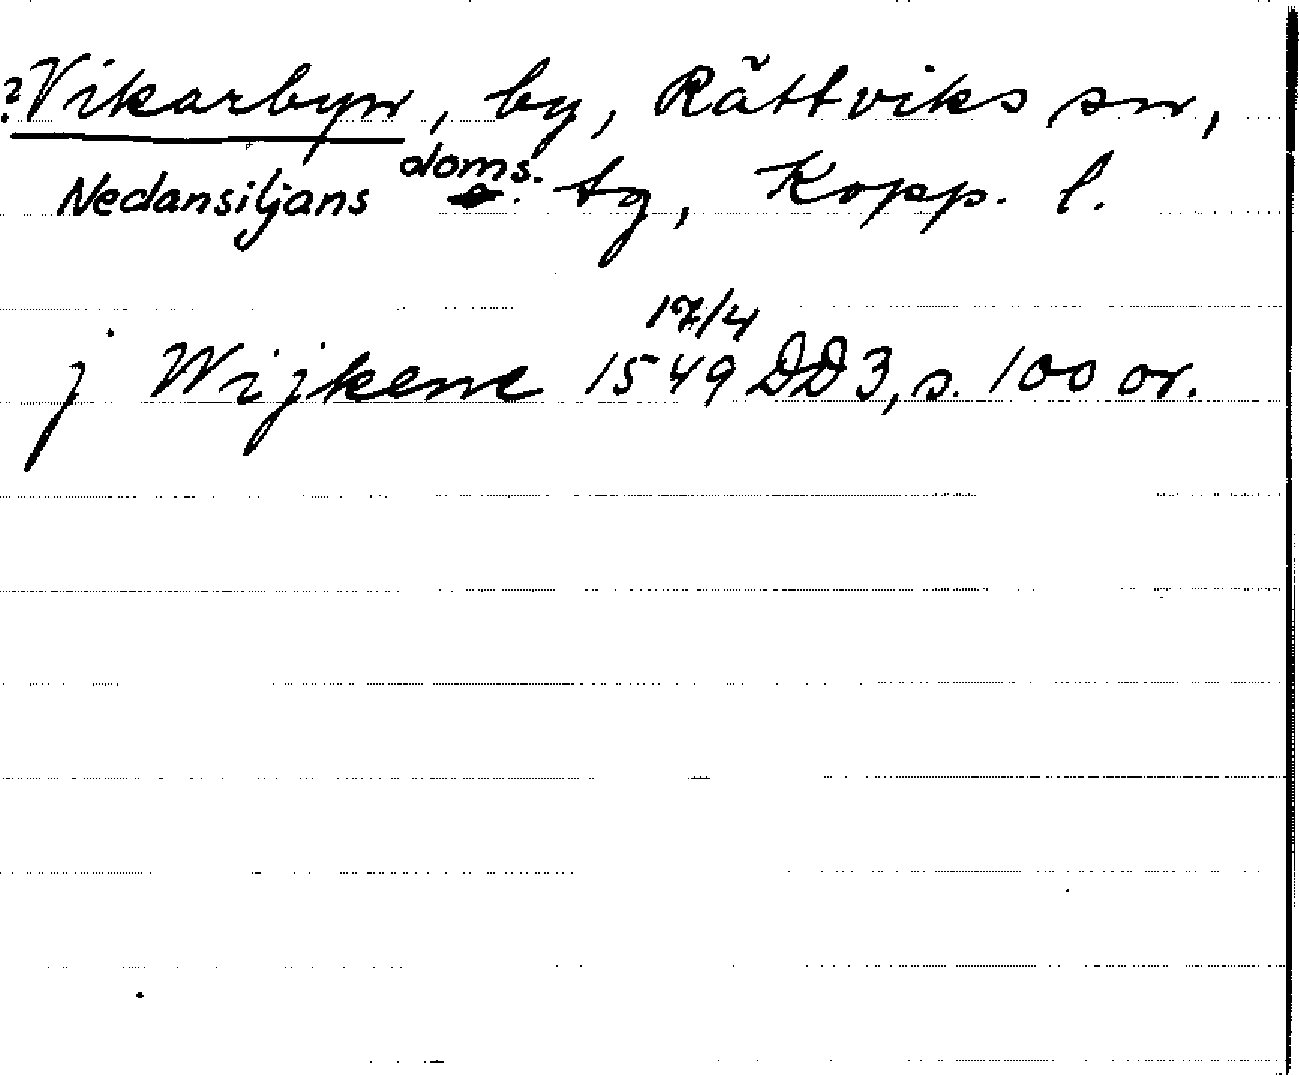 ?Vikarbyn, by, Rättviks sn,
Nedansiljans doms. tg, Kopp. l.
j Wijkene 1549 17/4 DD3, s. 100 or.